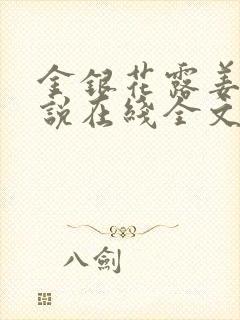 金銀花露姜
說在綫全文
八劍